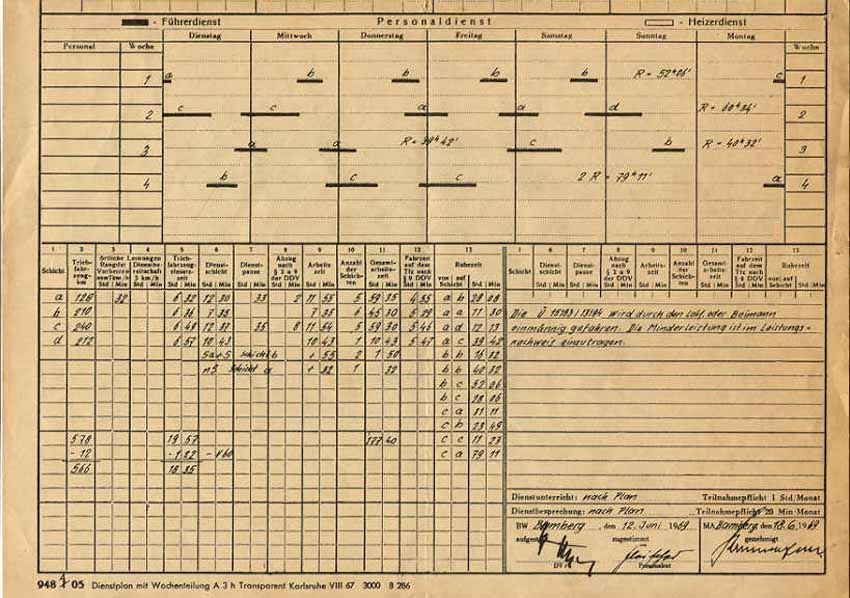 - Führerdienst Personaldienst - Heizerdienst
Dienstag Mittwoch Donnerstag Freitag Samstag Sonntag Montag
Personal Woche Woche
1 a b b b b R = 52ʰ06' c 1
2 c c a a d R = 60ʰ34' 2
3 a a R = 39ʰ42' c b R = 40ʰ32' 3
4 b c c 2 R = 79ʰ11' a 4
1 2 3 4 5 6 7 8 9 10 11 12 13 1 6 7 8 9 10 11 12 13
Schicht Triebfahrzeug-km Triebfahrzeugeinsatzzeit Dienstschicht Dienstpause Abzug nach § 2 a 9 der DDV Arbeitszeit Anzahl der Schichten Gesamtarbeitszeit Fahrzeit auf dem Tfz nach § 9 DDV Ruhezeit
von auf Schicht Std Min
a 126 32 6 32 12 30 33 2 11 55 5 59 35 4 55 a b 28 08
b 210 6 36 7 35 7 35 6 45 30 5 19 a a 11 30
c 240 6 48 12 37 35 8 11 54 5 59 30 5 46 a d 12 13
d 212 6 57 10 43 10 43 1 10 43 5 47 a c 39 42
Sa+S Schicht b + 55 2 1 50 b b 16 32
nS Schicht a + 32 1 32 b b 40 32
b c 52 06
b c 28 06
c a 11 11
c b 23 45
578 19 57 177 40 c c 11 23
- 12 - 1 22 c a 79 11
566 18 35
Die Ü 15183 / 13194 wird durch den Lokf. oder Beimann
einmännig gefahren. Die Minderleistung ist im Leistungs-
nachweis einzutragen.
Dienstunterricht: nach Plan Teilnahmepflicht 1 Std/Monat
Dienstbesprechung: nach Plan Teilnahmepflicht 20 Min/Monat
BW Bamberg, den 12. Juni 1969 MA Bamberg, den 18.6.1969
aufgestellt zugestimmt genehmigt
Personalrat
948 05 Dienstplan mit Wochenteilung A 3 h Transparent Karlsruhe VIII 67 3000 B 286